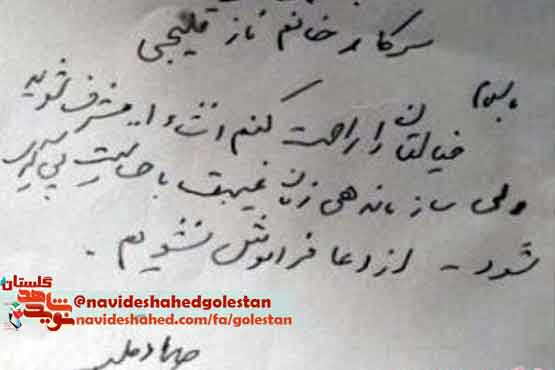 سرکار خانم ناز قلیچی
با سلام
خیالتان را راحت کنم انشاءا.. مشرف شوید
ولی سازماندهی زنان غیبتی با جدیت پیگیری
شود - از دعا فراموش نشویم .
گلستان
نوید شاهد
@navideshahedgolestan
navideshahed.com/fa/golestan